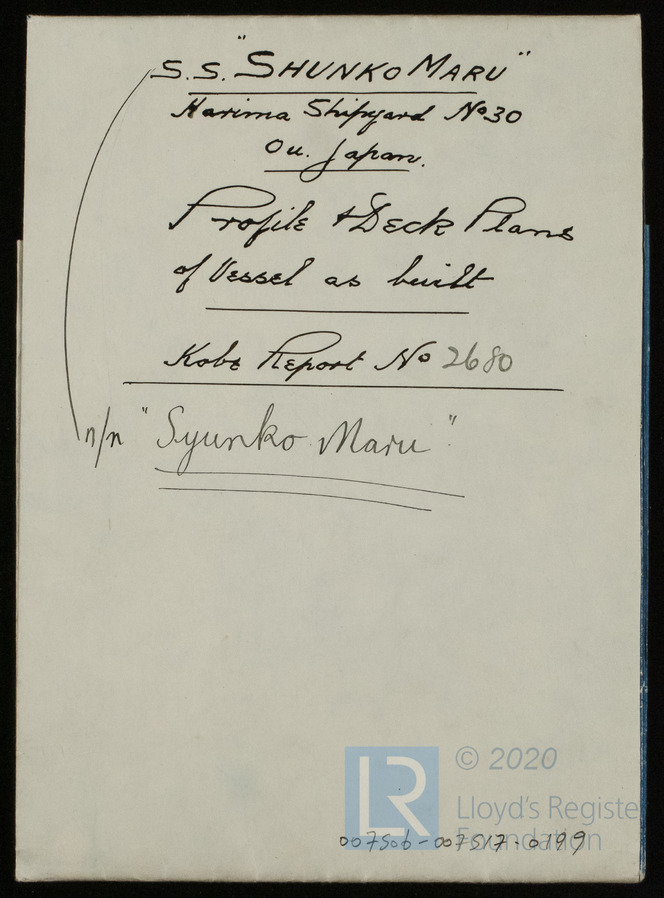 S.S. "SHUNKO MARU"
Harima Shipyard No 30
Ou. Japan.
Profile & Deck Plans
of Vessel as built
Kobe Report No 2680
n/n "Syunko Maru"
LR
© 2020
Lloyd's Registe
Foundation
007506-007517-0199